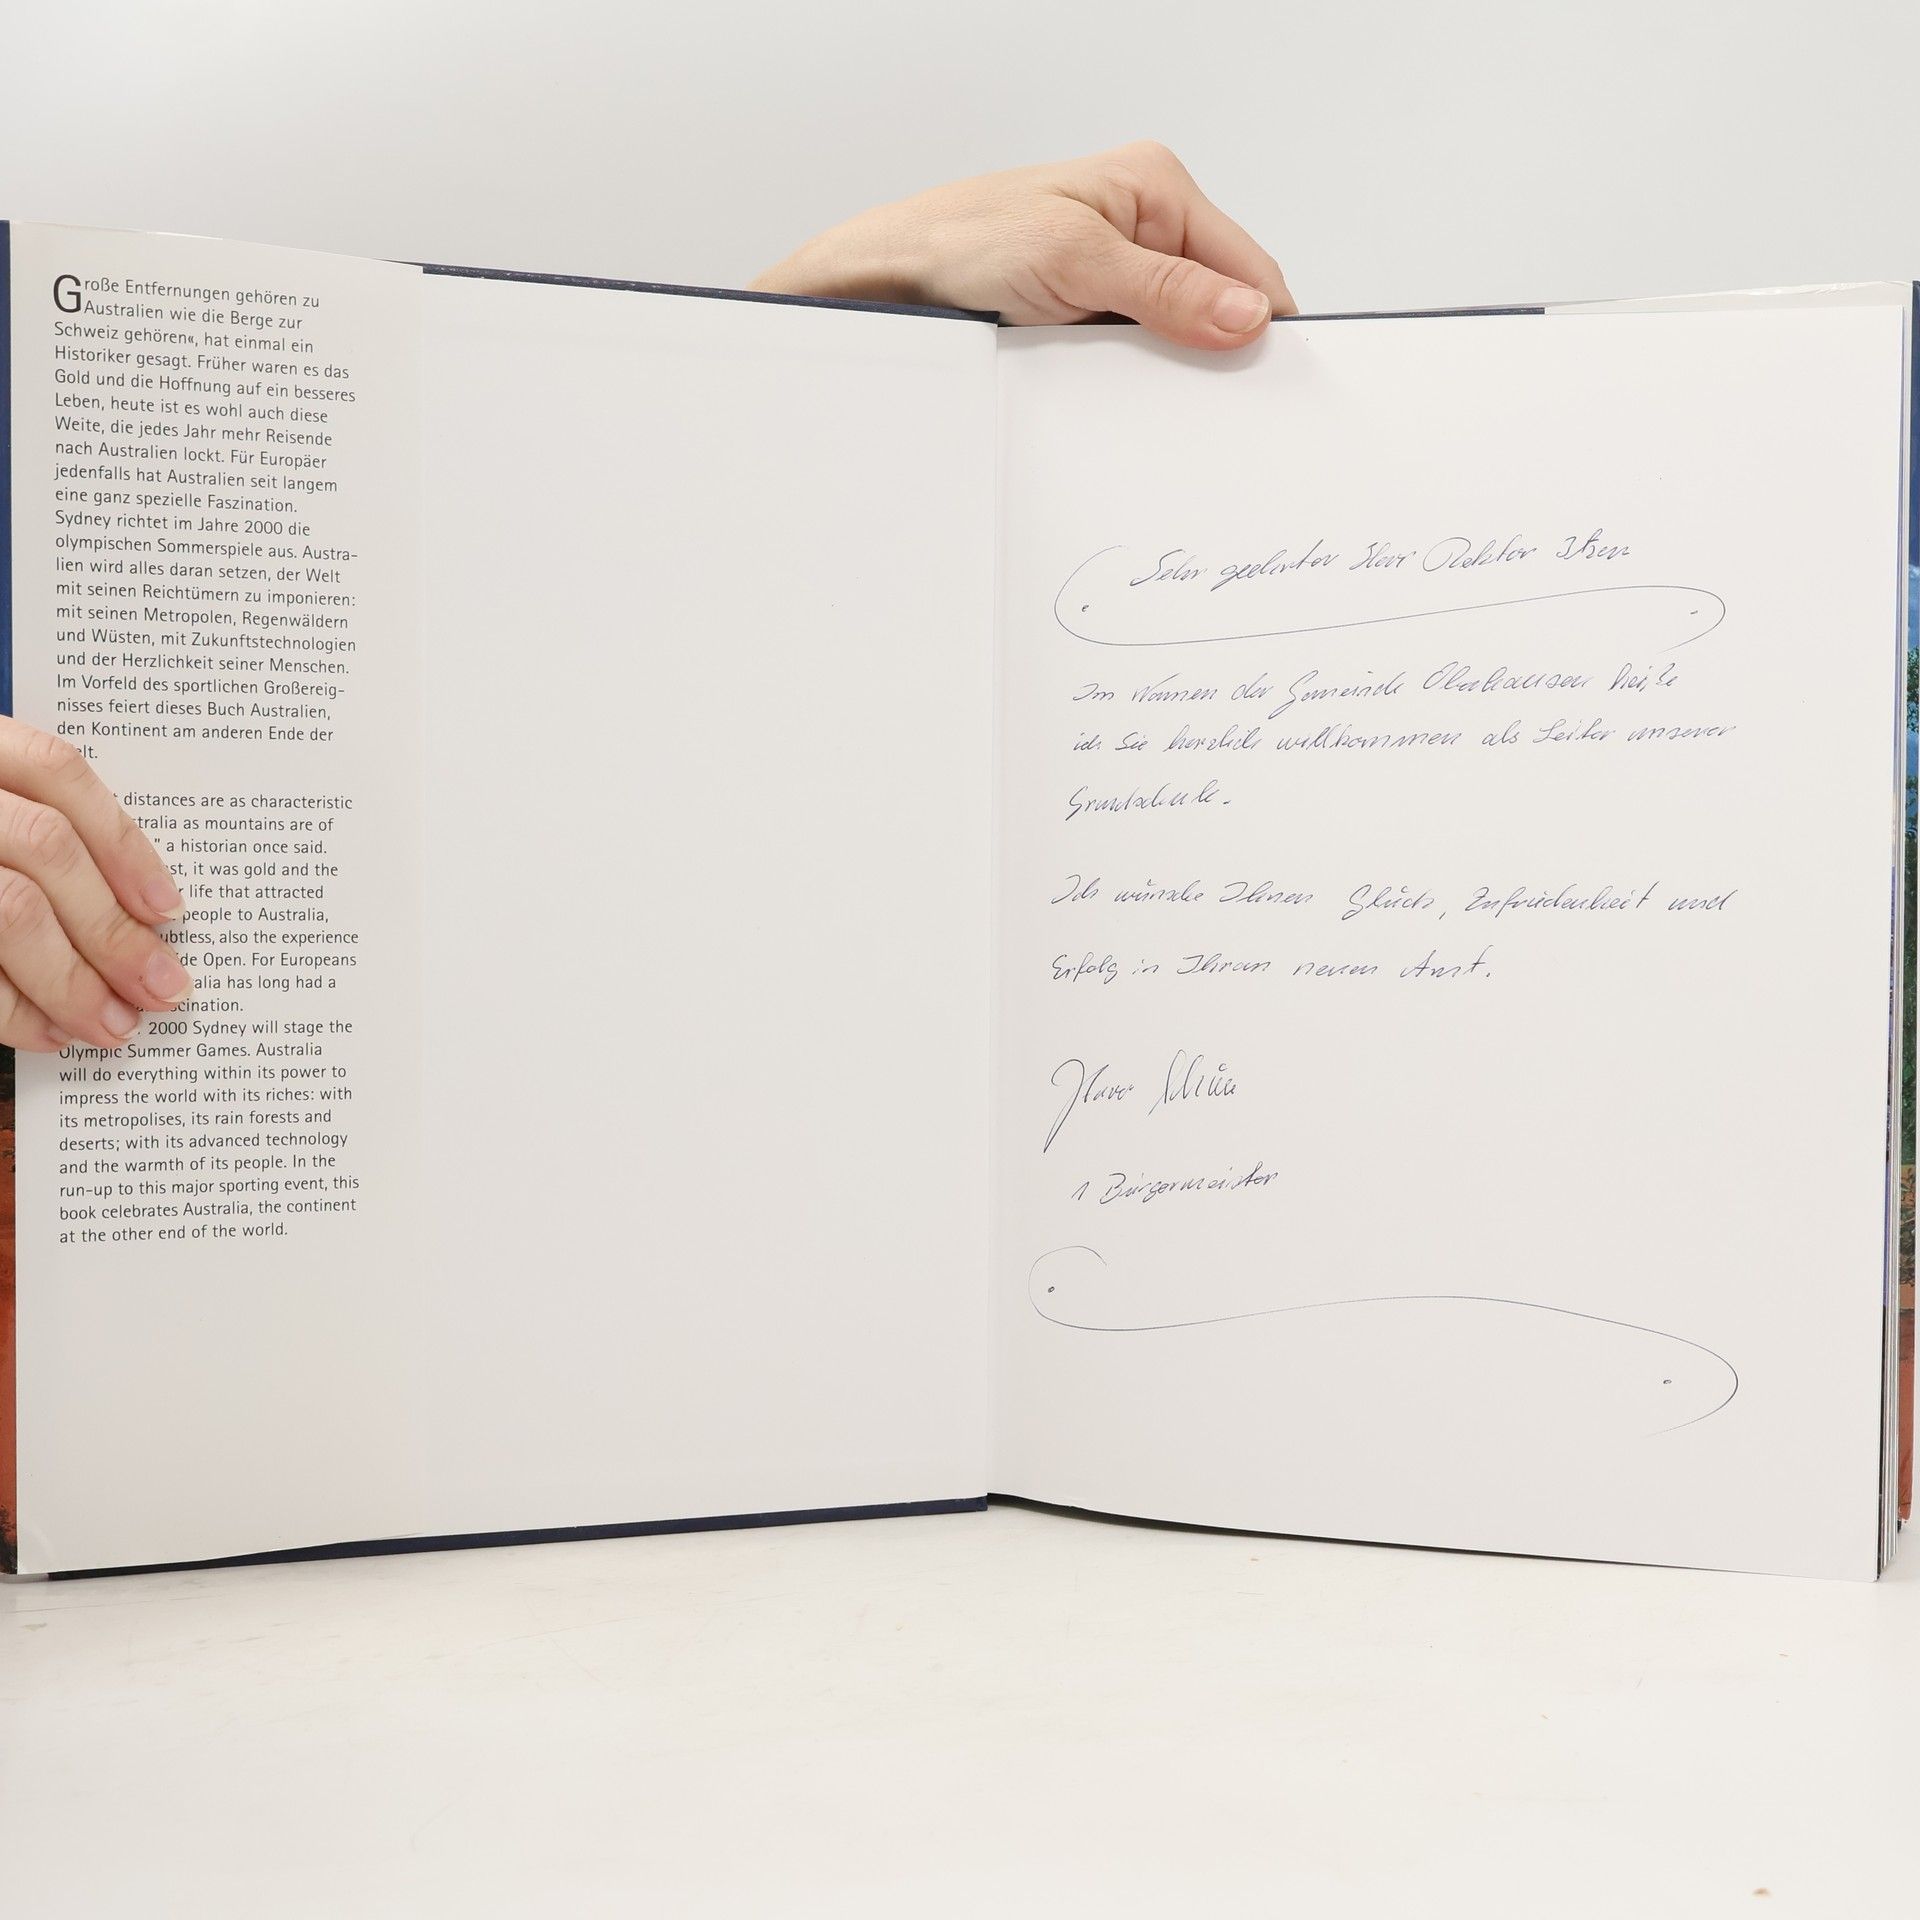 Große Entfernungen gehören zu
Australien wie die Berge zur
Schweiz gehören«, hat einmal ein
Historiker gesagt. Früher waren es das
Gold und die Hoffnung auf ein besseres
Leben, heute ist es wohl auch diese
Weite, die jedes Jahr mehr Reisende
nach Australien lockt. Für Europäer
jedenfalls hat Australien seit langem
eine ganz spezielle Faszination.
Sydney richtet im Jahre 2000 die
olympischen Sommerspiele aus. Austra-
lien wird alles daran setzen, der Welt
mit seinen Reichtümern zu imponieren:
mit seinen Metropolen, Regenwäldern
und Wüsten, mit Zukunftstechnologien
und der Herzlichkeit seiner Menschen.
Im Vorfeld des sportlichen Großereig-
nisses feiert dieses Buch Australien,
den Kontinent am anderen Ende der
distances are as characteristic
as mountains are of
a historian once said.
it was gold and the
life that attracted
people to Australia,
also the experience
Open. For Europeans
has long had a
2000 Sydney will stage the
Olympic Summer Games. Australia
will do everything within its power to
impress the world with its riches: with
its metropolises, its rain forests and
deserts; with its advanced technology
and the warmth of its people. In the
run-up to this major sporting event, this
book celebrates Australia, the continent
at the other end of the world.
Sehr geehrter Herr Rektor
Im Namen der Gemeinde heiße
ich Sie herzlich willkommen als Leiter unserer
Grundschule.
Ich wünsche Ihnen Glück, Zufriedenheit und
Erfolg in Ihrem neuen Amt.
1 Bürgermeister